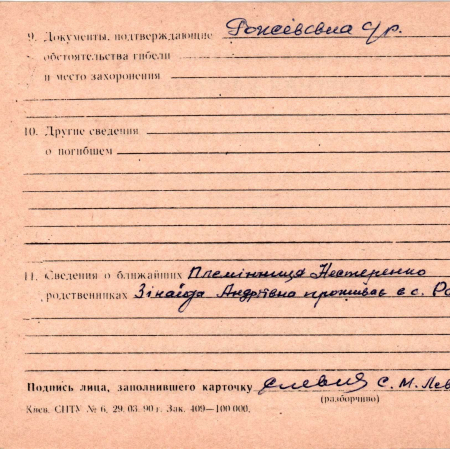 9. Документы, подтверждающие
обстоятельства гибели
и место захоронения
10. Другие сведения
о погибшем
11. Сведения о ближайших Племінниця Нестеренко
родственниках Зінаїда Андріївна проживає в с. Ро
Подпись лица, заполнившего карточку С. М. Лев
(разборчиво)
Киев. СПТУ № 6. 29. 03. 90 г. Зак. 409—100 000.